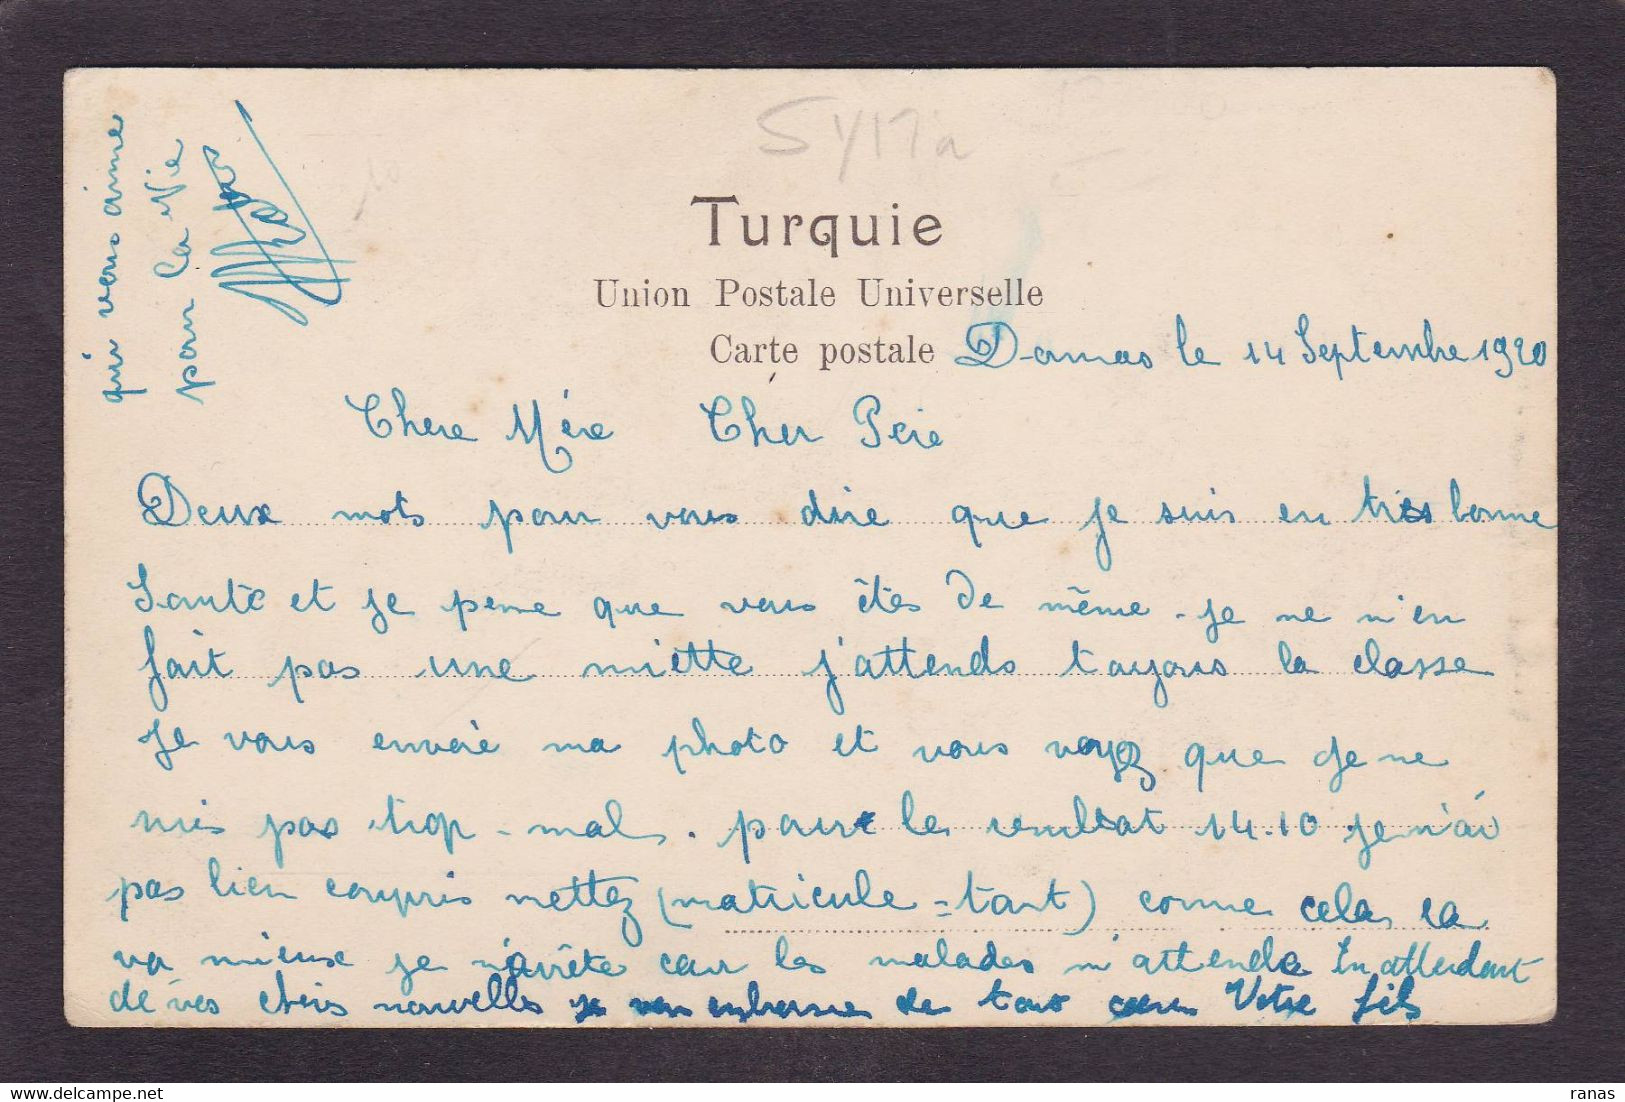 Syria
Turquie
Union Postale Universelle
Carte postale
Damas le 14 Septembre 1920
Chere Mère Cher Père
Deux mots pour vous dire que je suis en très bonne
Santé et je pense que vous êtes de même. je ne m'en
fait pas une miette j'attends toujours la classe
je vous envoie ma photo et vous voyez que je ne
suis pas trop mal. pour le resultat 14.10 je n'ai
pas bien compris mettez (matricule = tant) comme cela ca
va mieux je m'arrête car les malades m'attende En attendant
de vos chers nouvelles je vous embrasse de tout coeur Votre fils
qui vous aime
pour la Vie
ranas